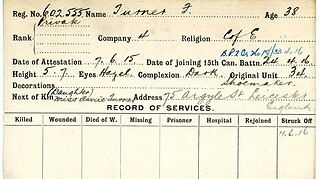 Reg. No. 602555 Name Turner F. Age 38
Rank Private Company 4 Religion C of E
Date of Attestation 7.6.15 Date of joining 15th Can. Battn. 24.4.16
Height 5-7 Eyes Hazel Complexion Dark Original Unit 34
Decorations Shoemaker
(Daughter)
Next of Kin Miss Turner Address 75 Argyle St Leicester
England
RECORD OF SERVICES.
Killed Wounded Died of W. Missing Prisoner Hospital Rejoined Struck Off
11.6.16